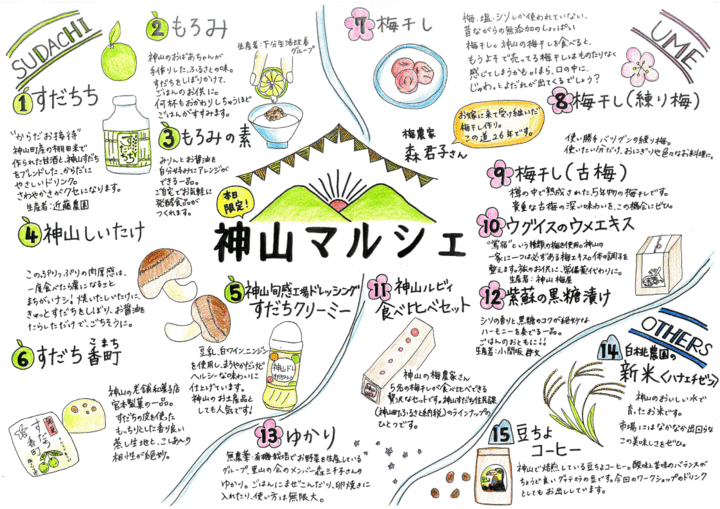 SUDACHI
1 すだちち
"からだお接待"
神山町産の棚田米で
作られた甘酒と、神山すだち
をブレンドした、からだに
やさしいドリンク。
さわやかさがクセになります。
生産者:近藤農園
すだちち
2 もろみ
生産者:下分生活改善
グループ
神山のおばあちゃんが
手作りした、ふるさとの味。
すだちをしぼりかけて、
ごはんのお供に。
何杯もおかわりしちゃうほど
ごはんがすすみます。
3 もろみの素
みりんとお醤油を
自分好みにアレンジが
できる一品。
ご自宅でお気軽に
発酵食品が
つくれます。
4 神山しいたけ
このぷりっぷりの肉厚感は、
一度食べたら虜になること
まちがいナシ!焼いたしいたけに、
きゅっとすだちをしぼり、お醤油を
たらしただけで、ごちそうに。
5 神山旬感工場ドレッシング
すだちクリーミー
豆乳、白ワインビネガー
を使用し、まろやかだけど
ヘルシーな味わいに
仕上げています。
神山のお土産品と
しても人気です!
6 すだち香町
こまち
神山の老舗和菓子店
宮本製菓の一品。
すだちの皮を使った
もっちりとした香り良い
蒸し生地と、こしあんの
相性が絶妙。
すだち香町
本日
限定!
神山マルシェ
UME
7 梅干し
梅、塩、シソしか使われていない、
昔ながらの無添加のしょっぱい
梅干し。神山の梅干しを食べると、
もうよそで売ってる梅干しはものたりなく
感じてしまうかもしれまん。口の中に、
じゅわっとよだれが出てくるでしょう?
梅農家
森 君子さん
お嫁に来て受け継いだ
梅干し作り。
この道、26年です。
8 梅干し(練り梅)
使い勝手バツグンの練り梅。
使いたい分だけ、おにぎりや色々なお料理に。
9 梅干し(古梅)
樽の中で熟成された、5年物の梅干しです。
貴重な古梅の深い味わいを、この機会にぜひ。
10 ウグイスのウメエキス
"鶯宿"という種類の梅を使用。神山の
一家に一つは必ずある梅エキスは体の調子を
整えます。旅のお供に、常備薬代わりに。
生産者:神山 梅屋
11 神山ルビィ
食べ比べセット
神山の梅農家さん
5名の梅干しが食べ比べできる
贅沢なセットです。神山すだち住民課
(神山町ふるさと納税)のラインナップの
ひとつです。
12 紫蘇の黒糖漬け
シソの香りと、黒糖のコクが絶妙な
ハーモニーを奏でる一品。
ごはんのおともに!!
生産者:小関阪 啓文
13 ゆかり
無農薬・有機栽培でお野菜を生産している
グループ、里山の会のメンバー森三千子さんの
ゆかり。ごはんにまぜこんだり、卵焼きに
入れたり、使い方は無限大。
OTHERS
14 白桃農園の
新米<ハナエチゼン>
神山のおいしい水で
育ったお米です。
市場にはなかなか出回らな
この美味しさをぜひ。
15 豆ちよ
コーヒー
神山で焙煎している豆ちよコーヒー。酸味と苦味のバランスが
ちょうど良いグァテマラの豆です。今回のワークショップのドリンク
としてもお出ししています。